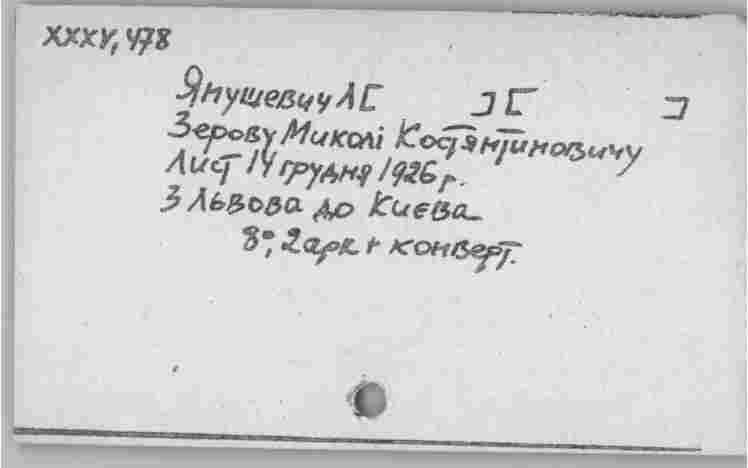 XXXV, 478
Янушевич Л[ ] [ ]
Зерову Миколі Костянтиновичу
Лист 14 грудня 1926 р.
З Львова до Києва
8°, 2 арк + конверт.